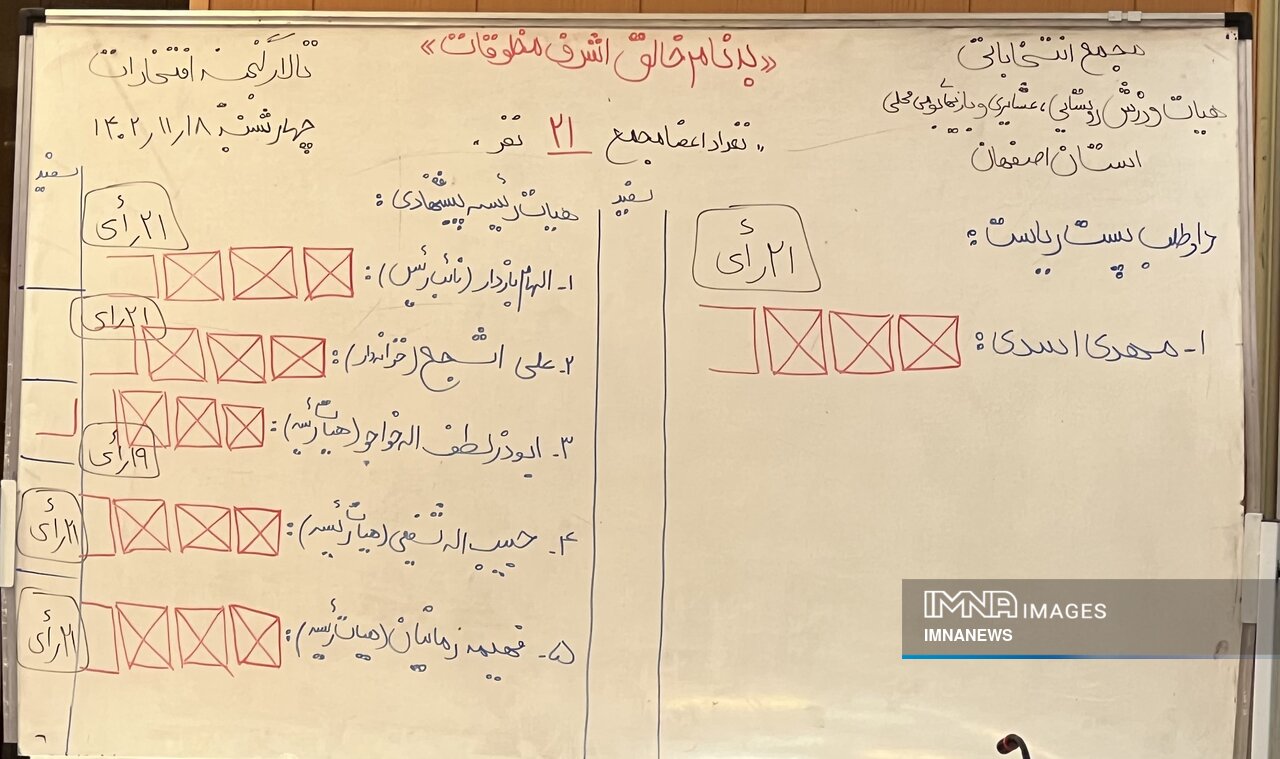 «بنام خالق اشرف مخلوقات»
مجمع انتخاباتی
هیات ورزش روستایی، عشایری و بازیهای بومی محلی
استان اصفهان
تالار گنجینه افتخارات
چهارشنبه ۱۴۰۲/۱۱/۱۸
"تعداد اعضا مجمع ۲۱ نفر"
داوطلب پست ریاست:
۲۱ رأی
۱- مهدی اسدی:
سفید
هیات رئیسه پیشنهادی:
سفید
۱- الهام بازدار (نائب رئیس):
۲۱ رأی
۲- علی اشجع (خزانه‌دار):
۲۱ رأی
۳- ابوذر لطف اله خواجو (هیات رئیسه):
۱۹ رأی
۴- حبیب اله شفیعی (هیات رئیسه):
۲۱ رأی
۵- فهیمه زمانیان (هیات رئیسه):
۲۱ رأی
IMNA IMAGES
IMNANEWS